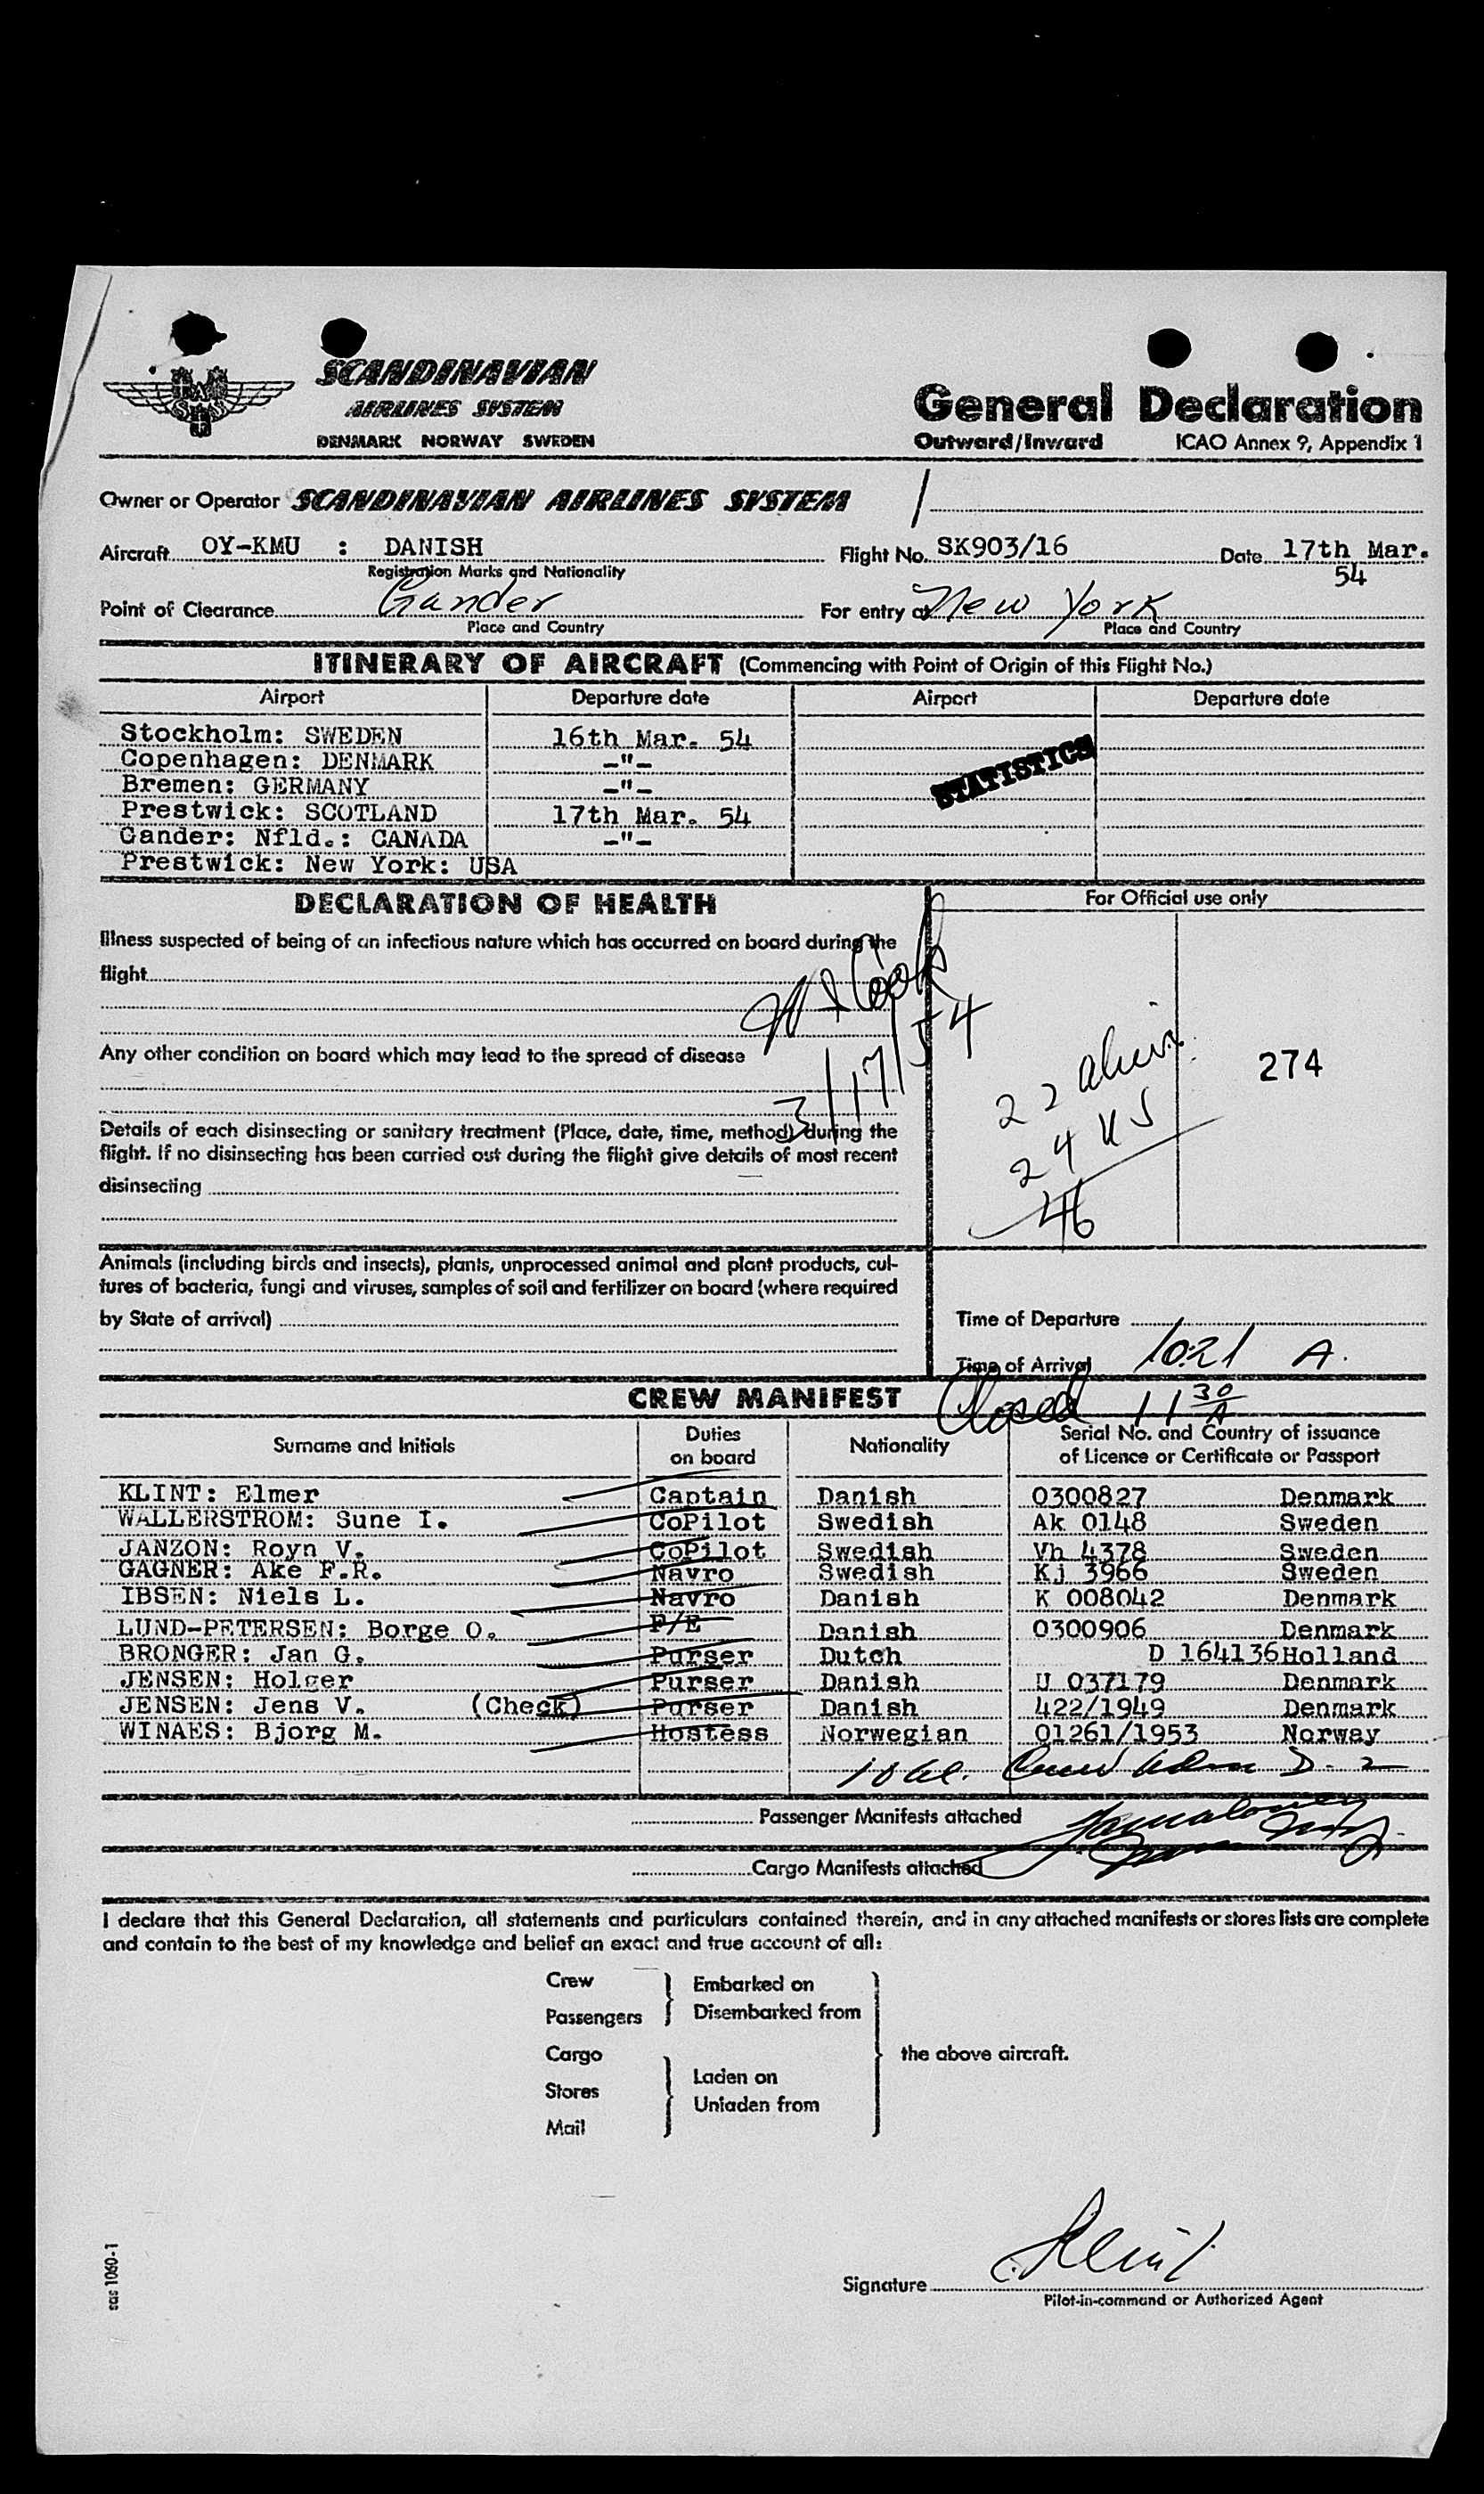 SCANDINAVIAN
AIRLINES SYSTEM
DENMARK NORWAY SWEDEN
General Declaration
Outward/Inward ICAO Annex 9, Appendix 1
Owner or Operator SCANDINAVIAN AIRLINES SYSTEM
Aircraft OY-KMU : DANISH Flight No. SK903/16 Date 17th Mar. 54
Registration Marks and Nationality
Point of Clearance Gander For entry at New York
Place and Country Place and Country
ITINERARY OF AIRCRAFT (Commencing with Point of Origin of this Flight No.)
Airport Departure date Airport Departure date
Stockholm: SWEDEN 16th Mar. 54
Copenhagen: DENMARK -"-
Bremen: GERMANY -"-
STATISTICS
Prestwick: SCOTLAND 17th Mar. 54
Gander: Nfld.: CANADA -"-
Prestwick: New York: USA
DECLARATION OF HEALTH
For Official use only
Illness suspected of being of an infectious nature which has occurred on board during the
flight
Cook
3/17/54
Any other condition on board which may lead to the spread of disease
22 alien
24 US
46
274
Details of each disinsecting or sanitary treatment (Place, date, time, method) during the
flight. If no disinsecting has been carried out during the flight give details of most recent
disinsecting
Animals (including birds and insects), plants, unprocessed animal and plant products, cul-
tures of bacteria, fungi and viruses, samples of soil and fertilizer on board (where required
by State of arrival)
Time of Departure
Time of Arrival 10:21 A.
Closed 11 30 A
CREW MANIFEST
Surname and Initials Duties on board Nationality Serial No. and Country of issuance of Licence or Certificate or Passport
KLINT: Elmer Captain Danish 0300827 Denmark
WALLERSTROM: Sune I. CoPilot Swedish Ak 0148 Sweden
JANZON: Royn V. CoPilot Swedish Vh 4378 Sweden
GAGNER: Ake F.R. Navro Swedish Kj 3966 Sweden
IBSEN: Niels L. Navro Danish K 008042 Denmark
LUND-PETERSEN: Borge O. F/E Danish 0300906 Denmark
BRONGER: Jan G. Purser Dutch D 164136 Holland
JENSEN: Holger Purser Danish U 037179 Denmark
JENSEN: Jens V. (Check) Purser Danish 422/1949 Denmark
WINAES: Bjorg M. Hostess Norwegian 01261/1953 Norway
Passenger Manifests attached
Cargo Manifests attached
I declare that this General Declaration, all statements and particulars contained therein, and in any attached manifests or stores lists are complete
and contain to the best of my knowledge and belief an exact and true account of all:
Crew
Passengers
Embarked on
Disembarked from
Cargo
Stores
Mail
Laden on
Unladen from
the above aircraft.
Signature Klint
Pilot-in-command or Authorized Agent
sas 1060-1